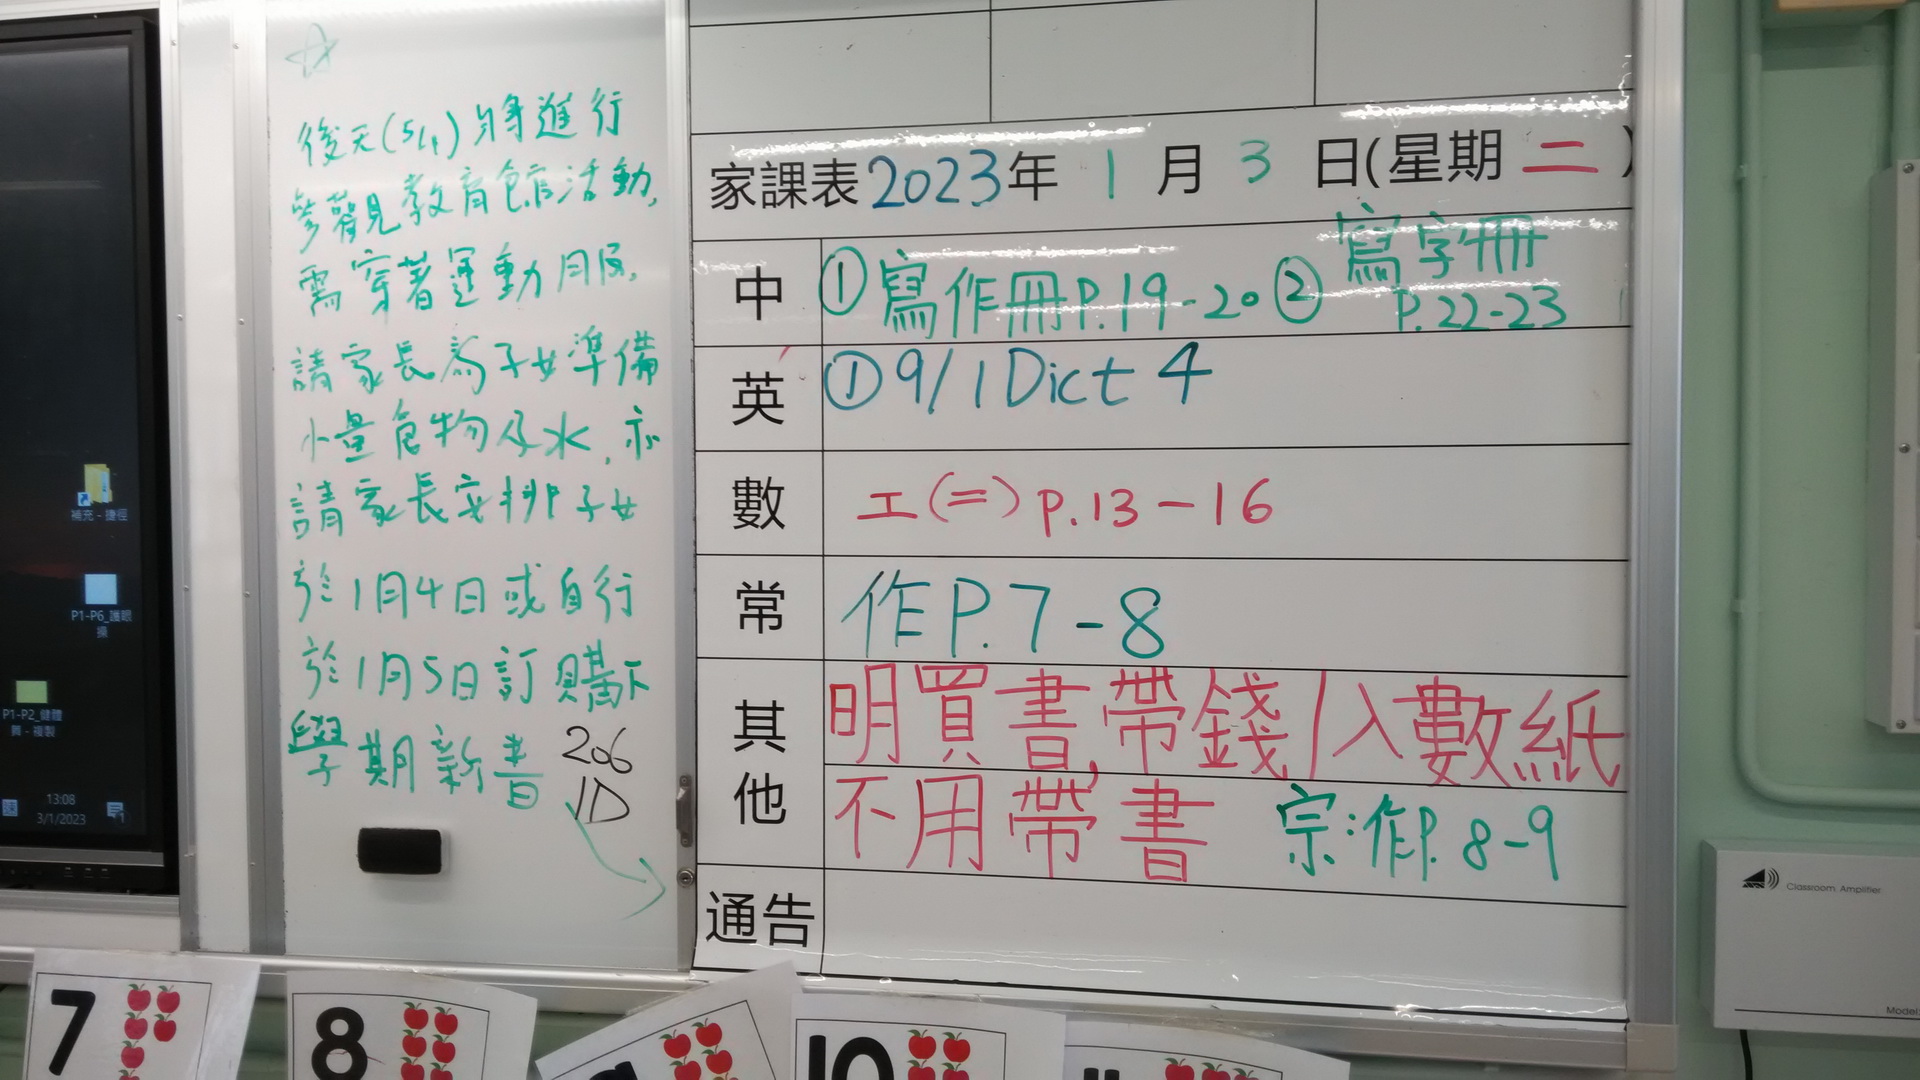 後天(5/1)將進行
參觀教育館活動,
需穿著運動服,
請家長為子女準備
小量食物及水,亦
請家長安排子女
於1月4日或自行
於1月5日訂購下
學期新書
206
1D
家課表2023年 1 月 3 日(星期 二 )
中 ①寫作冊P.19-20 ②寫字冊
P.22-23
英 ①9/1 Dict 4
數 工(二) p.13-16
常 作P.7-8
其他 明買書,帶錢/入數紙
不用帶書 宗:作P.8-9
通告
補充 - 捷徑
P1-P6_護眼
操
P1-P2_健體
13:08
3/1/2023
Classroom Amplifier
Model:
7
8
10